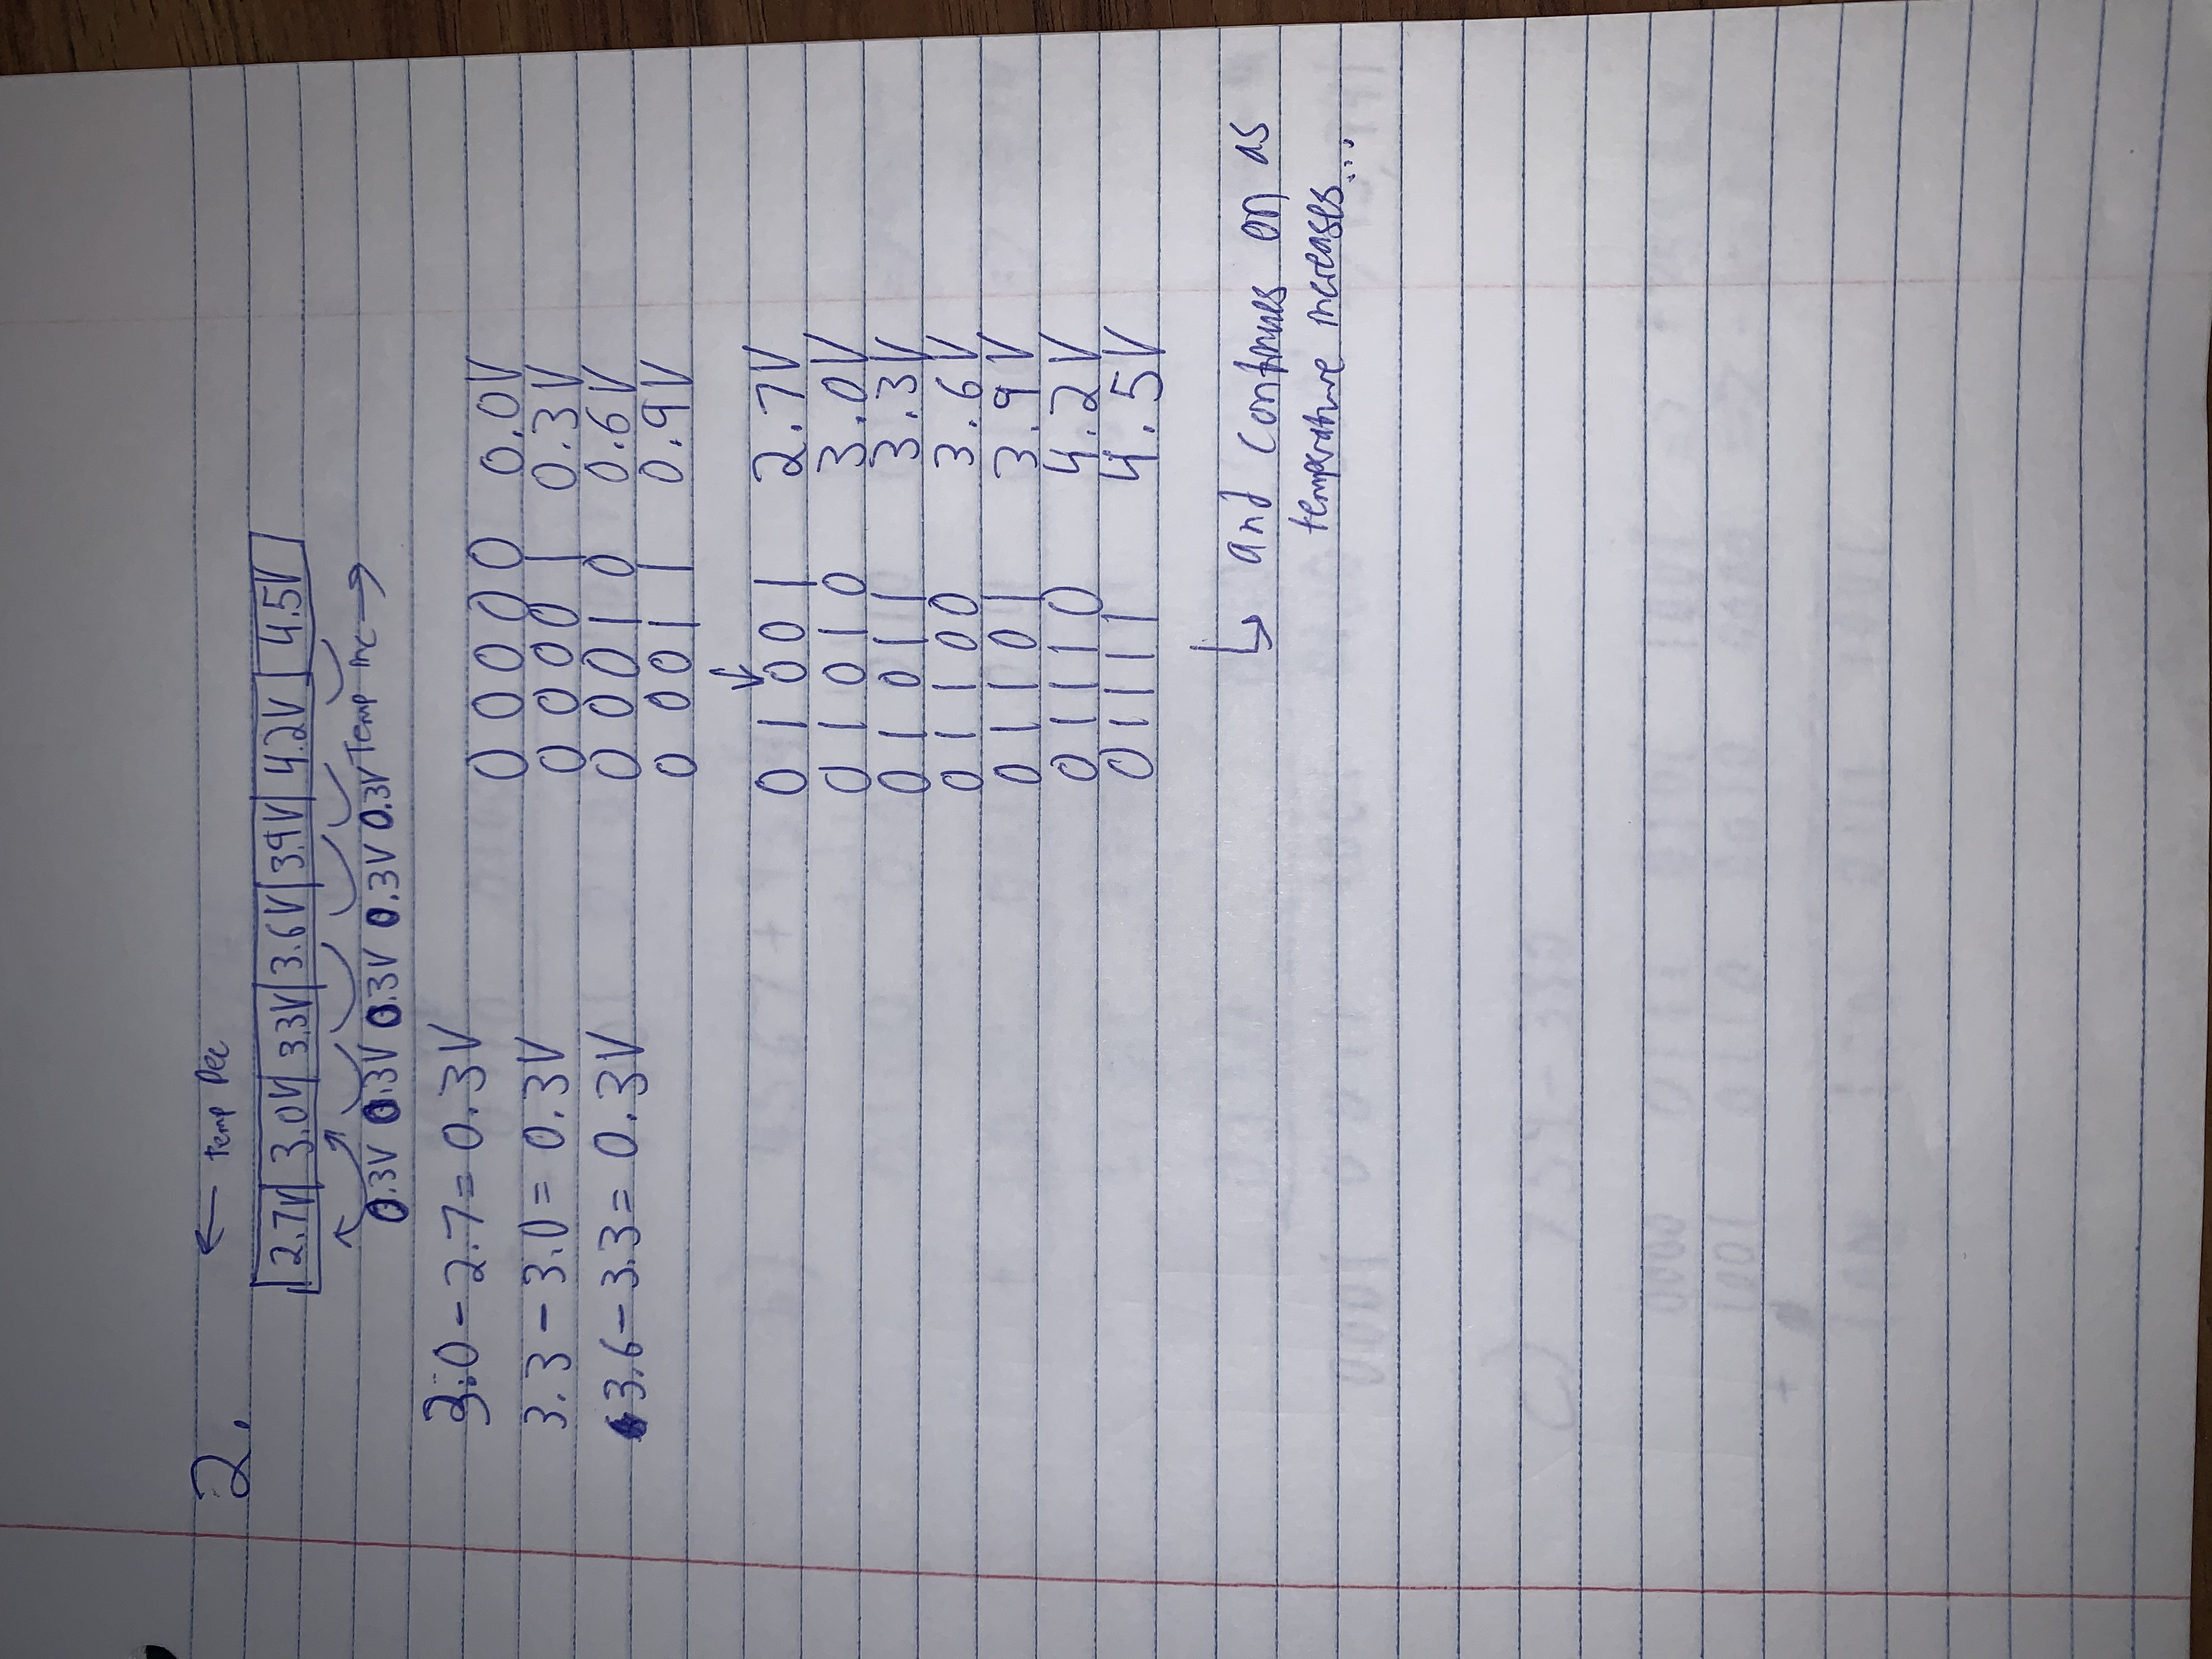 2.
← Temp Dec
2.7V 3.0V 3.3V 3.6V 3.9V 4.2V 4.5V
0.3V 0.3V 0.3V 0.3V 0.3V Temp Inc →
3.0 - 2.7 = 0.3V
3.3 - 3.0 = 0.3V
3.6 - 3.3 = 0.3V
0 0 0 0 0 0.0V
0 0 0 0 1 0.3V
0 0 0 1 0 0.6V
0 0 0 1 1 0.9V
↓
0 1 0 0 1 2.7V
0 1 0 1 0 3.0V
0 1 0 1 1 3.3V
0 1 1 0 0 3.6V
0 1 1 0 1 3.9V
0 1 1 1 0 4.2V
0 1 1 1 1 4.5V
↳ and continues on as
temperature increases...